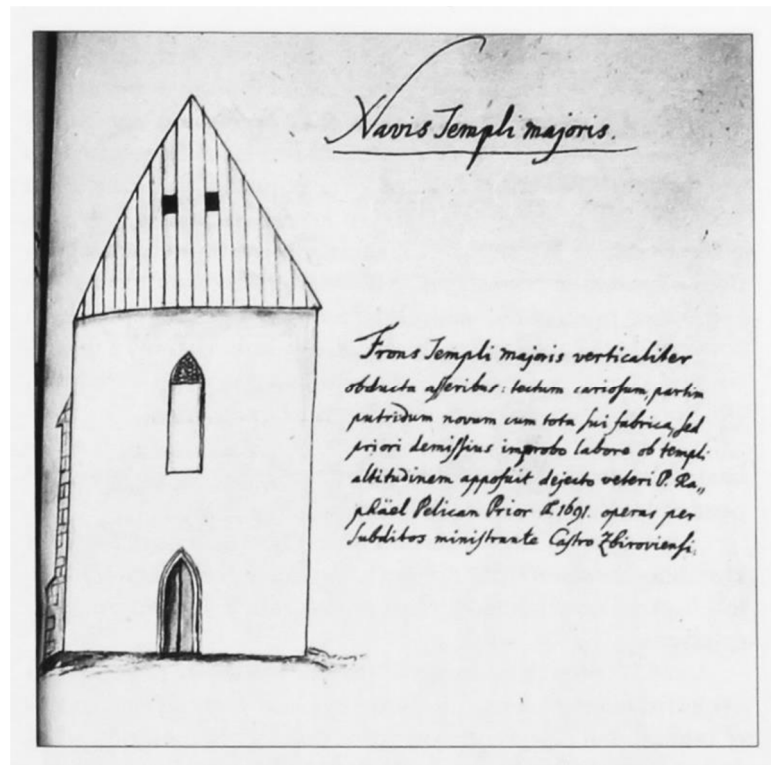 Navis Templi majoris.
Frons Templi majoris verticaliter
obducta asseribus: tectum cariosum, partim
putridum novum cum tota sui fabrica, sed
priori demissius improbo labore ob templi
altitudinem apposuit dejecto veteri P. Ra„
phäel Pelican Prior A. 1691. operas per
subditos ministrante Castro Zbiroviensi.